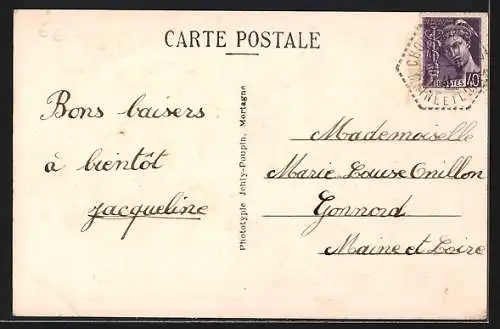 CARTE POSTALE
Bons baisers
à bientôt
Jacqueline
Phototypie Jehly-Poupin, Mortagne
Mademoiselle
Marie Louise Onillon
Gonnord
Maine et Loire